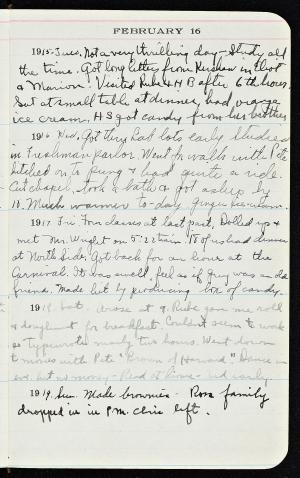 FEBRUARY 16
1915 Tues. Not a very thrilling day – Study all
the time. Got long letters from
& Marion! Visited Rube & H B after 6th hour.
Sat at small table at dinner, had orange
ice cream. H S got candy from her brother
1916 Wed. Got Hist lots early studied
in Freshman Parlor. Went for walk with Pete
hitched on to pung & had quite a ride.
Cut chapel, took a bath & got asleep by
10. Much warmer to-day.
1917 Fri. classes at last past. Dolled up &
met Mr. Wright on 5:22 train. 18 of us had dinner
at North Side. Got back for an hour at the
Carnival. It was swell, feel as if guy was an old
friend. Made hit by producing box of candy.
1918 Sat. Arose at 9. Rube gave me roll
& doughnut for breakfast. Couldn't seem to work
so typewrote nearly two hours. Went down
to movies with Pete "Brown of Harvard" Dance in
eve. but no money – Read at home – bed early
1919. Sun. Made brownies – Ross family
dropped in in P.M. left.